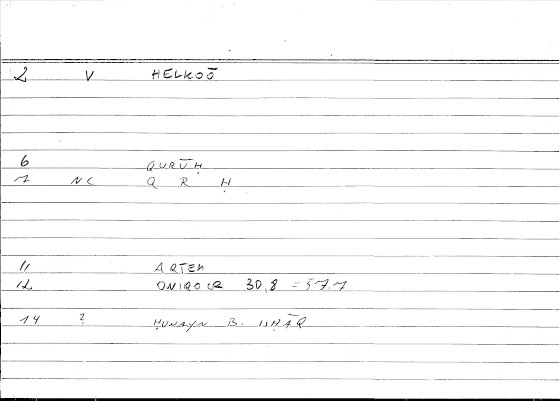 2 V HELKOŌ
6 QURŪḤ
1 NC Q R Ḥ
11 ARTEM
12 ONIROCR 30,8 = 57.1
14 ? ḤUNAYN B. ISḤĀQ